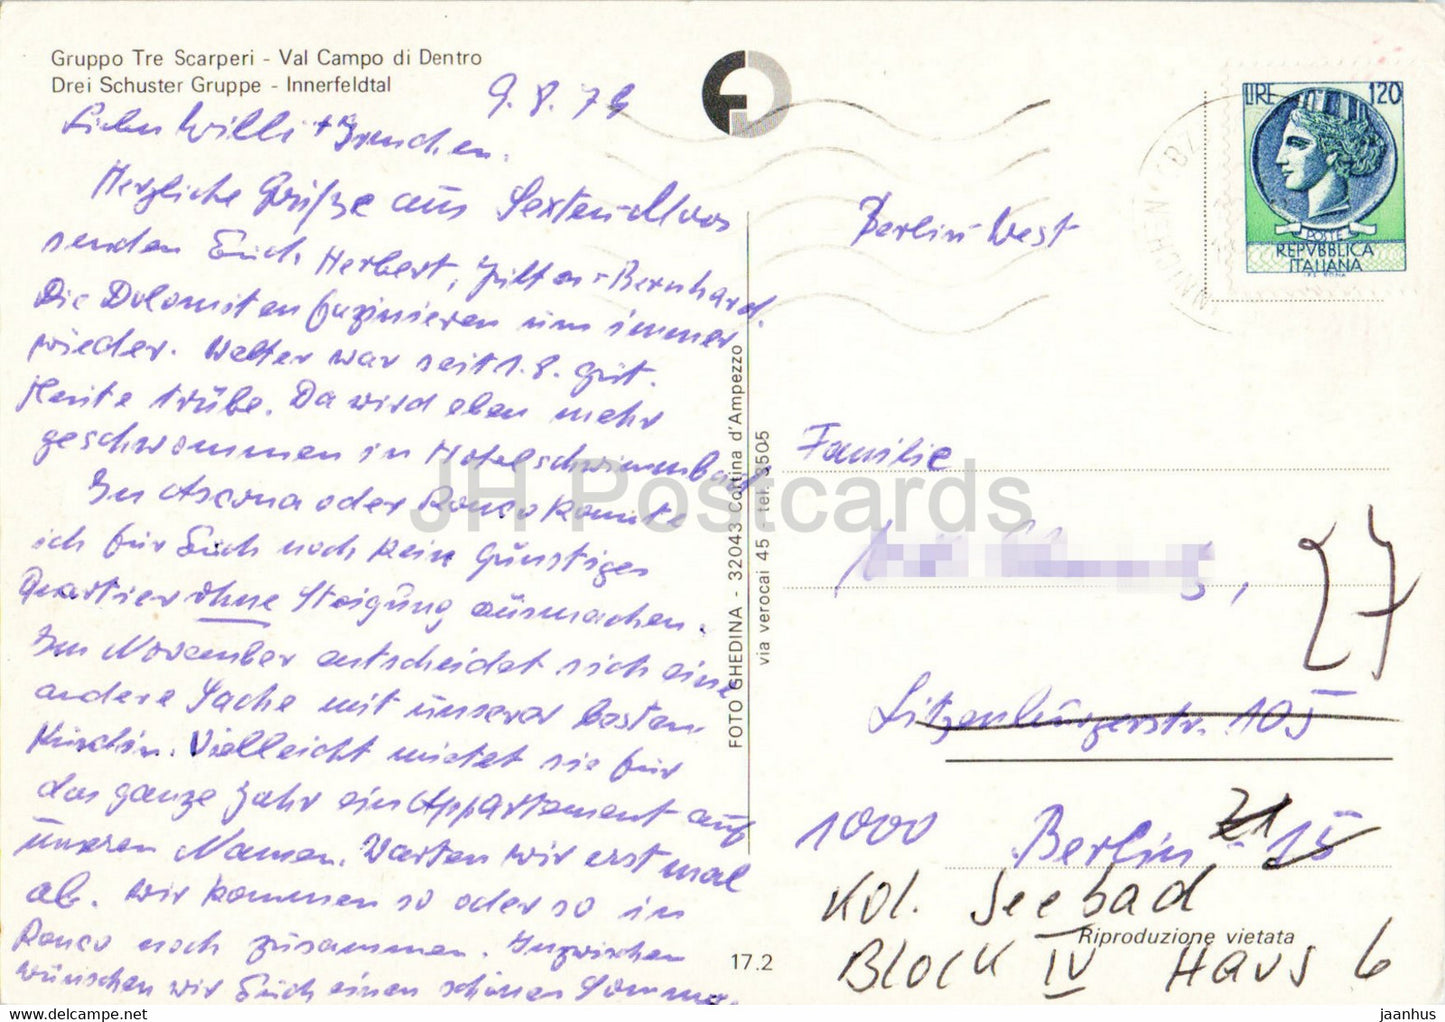 Gruppo Tre Scarperi - Val Campo di Dentro
Drei Schuster Gruppe - Innerfeldtal
9.8.79
Lieber Willi +
Herzliche Grüße aus Sexten-Moos
senden Euch Herbert, - Bernhard.
Die Dolomiten faszinieren uns immer
wieder. Wetter war seit 1.8. gut.
Heute trübe. Da wird eben mehr
geschwommen im Hotelschwimmbad.
In Ascona oder Ronco konnte
ich für Euch noch kein günstiges
Quartier ohne Steigung ausmachen.
Im November entscheidet sich eine
andere Sache mit unserer besten
Vielleicht mietet sie für
das ganze Jahr ein Appartement auf
unseren Namen. Warten wir erst mal
ab. Wir kommen so oder so in
Ronco noch zusammen. Inzwischen
wünschen wir Euch einen schönen Sommer.
FOTO GHEDINA - 32043 Cortina d'Ampezzo
via verocai 45 - tel. 3505
17.2
LIRE 120
POSTE
REPVBBLICA
ITALIANA
Berlin-West
Familie
Litzenburgerstr. 105
1000 Berlin 21 - 15
Kol. Seebad
Riproduzione vietata
Block IV Haus 6
JH Postcards
jaanhus